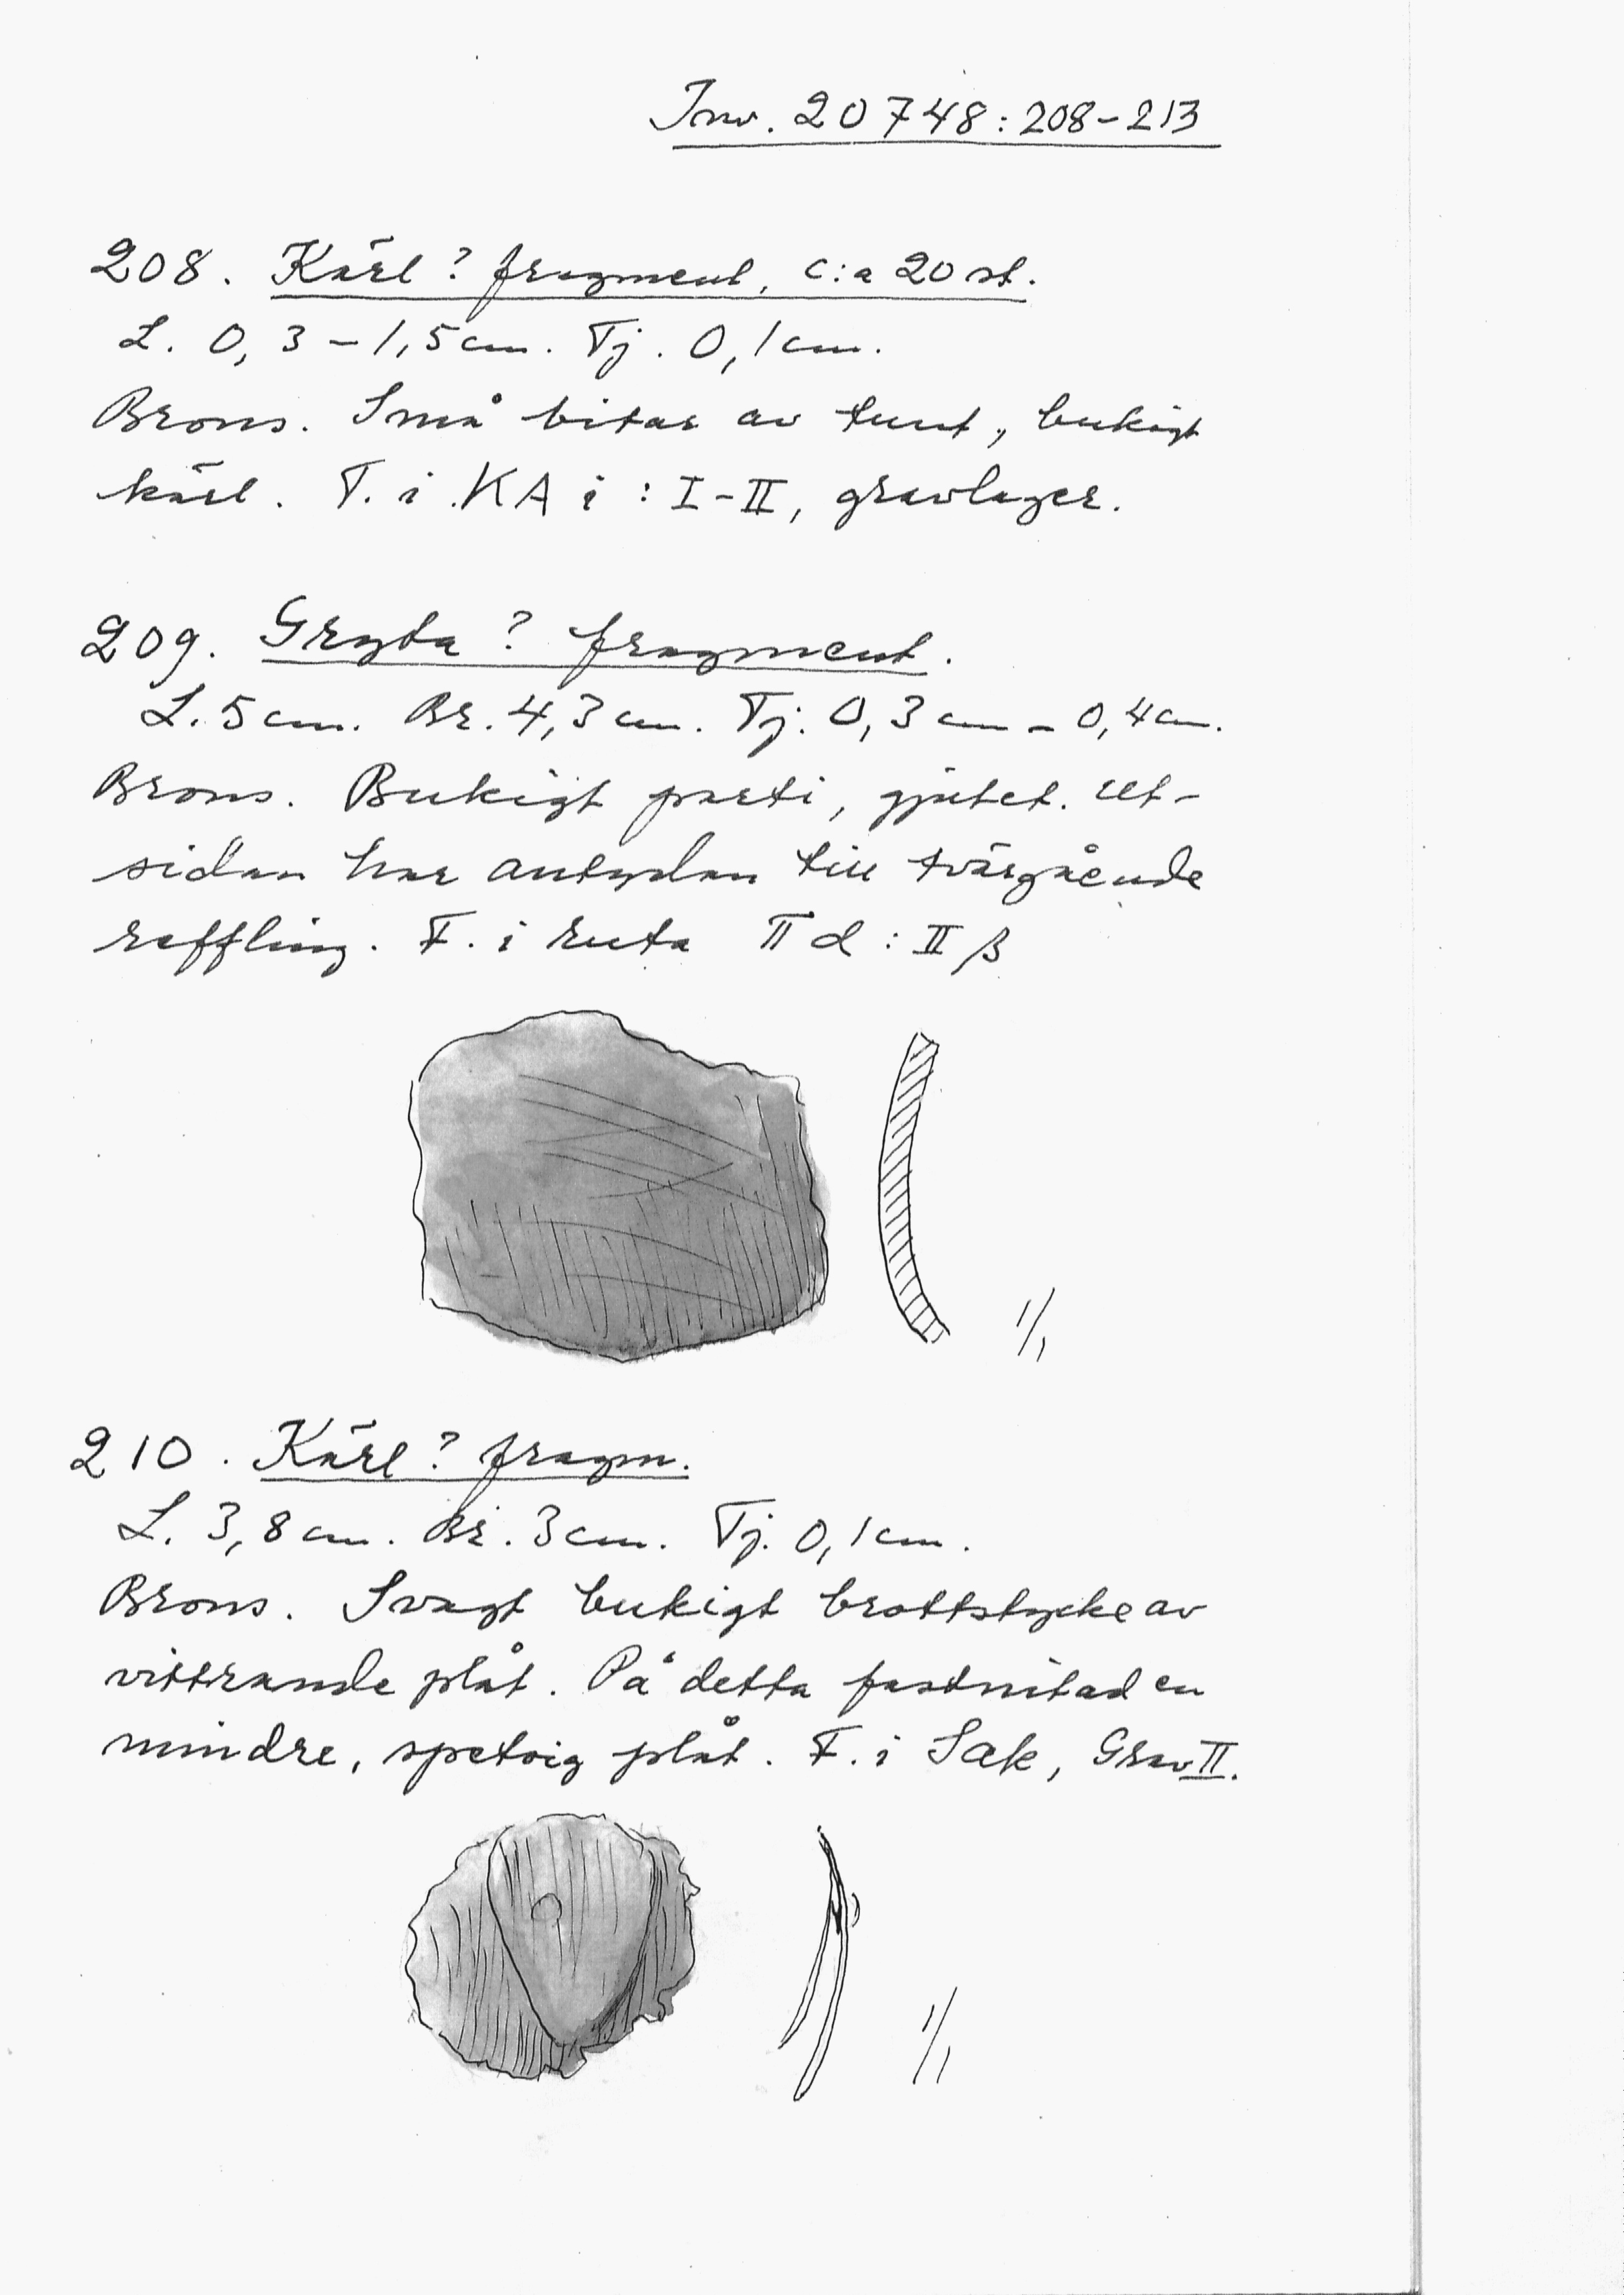 Inv. 20748:208-213
208. Kärl? fragment, c:a 20 st.
L. 0,3-1,5 cm. Tj. 0,1 cm.
Brons. Små bitar av tunt, bukigt
kärl. T. i KA i : I-II, gravlager.
209. Gryta? fragment.
L. 5 cm. Br. 4,3 cm. Tj. 0,3 cm - 0,4 cm.
Brons. Bukigt parti, gjutet. Ut-
sidan har antydan till tvärgående
räffling. F. i ruta II d : II β
1/1
210. Kärl? fragm.
L. 3,8 cm. Br. 3 cm. Tj. 0,1 cm.
Brons. Svagt bukigt brottstycke av
vittrande plåt. På detta fastnitad en
mindre, spetsig plåt. F. i Sak, Grav II.
1/1